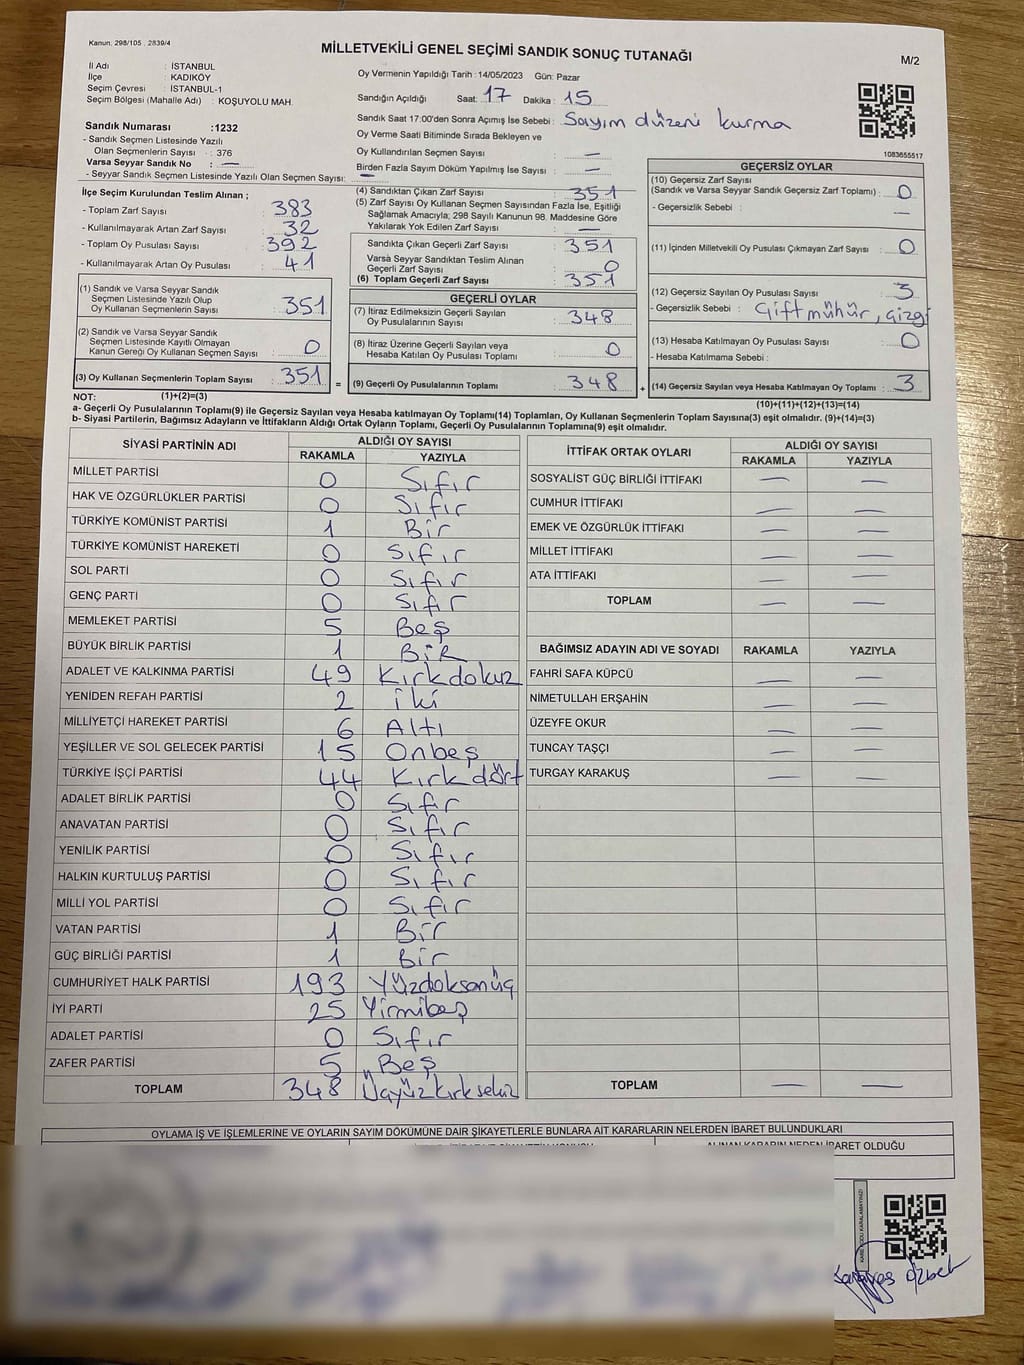 Kanun: 298/105 , 2839/4
MİLLETVEKİLİ GENEL SEÇİMİ SANDIK SONUÇ TUTANAĞI
M/2
İl Adı : İSTANBUL
İlçe : KADIKÖY
Seçim Çevresi : İSTANBUL-1
Seçim Bölgesi (Mahalle Adı) : KOŞUYOLU MAH.
Sandık Numarası :1232
- Sandık Seçmen Listesinde Yazılı
Olan Seçmenlerin Sayısı : 376
Varsa Seyyar Sandık No : —
- Seyyar Sandık Seçmen Listesinde Yazılı Olan Seçmen Sayısı: —
Oy Vermenin Yapıldığı Tarih : 14/05/2023 Gün: Pazar
Sandığın Açıldığı Saat: 17 Dakika : 15
Sandık Saat 17:00'den Sonra Açımış İse Sebebi : Sayım düzeni kurma
Oy Verme Saati Bitiminde Sırada Bekleyen ve
Oy Kullandırılan Seçmen Sayısı : —
Birden Fazla Sayım Döküm Yapılmış İse Sayısı : —
1083655517
İlçe Seçim Kurulundan Teslim Alınan ;
- Toplam Zarf Sayısı : 383
- Kullanılmayarak Artan Zarf Sayısı : 32
- Toplam Oy Pusulası Sayısı : 392
- Kullanılmayarak Artan Oy Pusulası : 41
(1) Sandık ve Varsa Seyyar Sandık
Seçmen Listesinde Yazılı Olup
Oy Kullanan Seçmenlerin Sayısı : 351
(2) Sandık ve Varsa Seyyar Sandık
Seçmen Listesinde Kayıtlı Olmayan
Kanun Gereği Oy Kullanan Seçmen Sayısı : 0
(3) Oy Kullanan Seçmenlerin Toplam Sayısı : 351 =
(4) Sandıktan Çıkan Zarf Sayısı : 351
(5) Zarf Sayısı Oy Kullanan Seçmen Sayısından Fazla İse, Eşitliği
Sağlamak Amacıyla; 298 Sayılı Kanunun 98. Maddesine Göre
Yakılarak Yok Edilen Zarf Sayısı : —
Sandıkta Çıkan Geçerli Zarf Sayısı : 351
Varsa Seyyar Sandıktan Teslim Alınan
Geçerli Zarf Sayısı : 0
(6) Toplam Geçerli Zarf Sayısı : 351
GEÇERLİ OYLAR
(7) İtiraz Edilmeksizin Geçerli Sayılan
Oy Pusulalarının Sayısı : 348
(8) İtiraz Üzerine Geçerli Sayılan veya
Hesaba Katılan Oy Pusulası Toplamı : 0
(9) Geçerli Oy Pusulalarının Toplamı : 348 +
GEÇERSİZ OYLAR
(10) Geçersiz Zarf Sayısı
(Sandık ve Varsa Seyyar Sandık Geçersiz Zarf Toplamı) : 0
- Geçersizlik Sebebi : —
(11) İçinden Milletvekili Oy Pusulası Çıkmayan Zarf Sayısı : 0
(12) Geçersiz Sayılan Oy Pusulası Sayısı : 3
- Geçersizlik Sebebi : Çift mühür, çizgi
(13) Hesaba Katılmayan Oy Pusulası Sayısı : 0
- Hesaba Katılmama Sebebi :
(14) Geçersiz Sayılan veya Hesaba Katılmayan Oy Toplamı : 3
NOT: (1)+(2)=(3)
(10)+(11)+(12)+(13)=(14)
a- Geçerli Oy Pusulalarının Toplamı(9) ile Geçersiz Sayılan veya Hesaba katılmayan Oy Toplamı(14) Toplamları, Oy Kullanan Seçmenlerin Toplam Sayısına(3) eşit olmalıdır. (9)+(14)=(3)
b- Siyasi Partilerin, Bağımsız Adayların ve İttifakların Aldığı Ortak Oyların Toplamı, Geçerli Oy Pusulalarının Toplamına(9) eşit olmalıdır.
SİYASİ PARTİNİN ADI ALDIĞI OY SAYISI
RAKAMLA YAZIYLA
MİLLET PARTİSİ 0 Sıfır
HAK VE ÖZGÜRLÜKLER PARTİSİ 0 Sıfır
TÜRKİYE KOMÜNİST PARTİSİ 1 Bir
TÜRKİYE KOMÜNİST HAREKETİ 0 Sıfır
SOL PARTİ 0 Sıfır
GENÇ PARTİ 0 Sıfır
MEMLEKET PARTİSİ 5 Beş
BÜYÜK BİRLİK PARTİSİ 1 BiR
ADALET VE KALKINMA PARTİSİ 49 Kırkdokuz
YENİDEN REFAH PARTİSİ 2 iki
MİLLİYETÇİ HAREKET PARTİSİ 6 Altı
YEŞİLLER VE SOL GELECEK PARTİSİ 15 Onbeş
TÜRKİYE İŞÇİ PARTİSİ 44 Kırkdört
ADALET BİRLİK PARTİSİ 0 Sıfır
ANAVATAN PARTİSİ 0 Sıfır
YENİLİK PARTİSİ 0 Sıfır
HALKIN KURTULUŞ PARTİSİ 0 Sıfır
MİLLİ YOL PARTİSİ 0 Sıfır
VATAN PARTİSİ 1 Bir
GÜÇ BİRLİĞİ PARTİSİ 1 Bir
CUMHURİYET HALK PARTİSİ 193 Yüzdoksanüç
İYİ PARTİ 25 Yirmibeş
ADALET PARTİSİ 0 Sıfır
ZAFER PARTİSİ 5 Beş
TOPLAM 348 Üçyüzkırksekiz
İTTİFAK ORTAK OYLARI ALDIĞI OY SAYISI
RAKAMLA YAZIYLA
SOSYALİST GÜÇ BİRLİĞİ İTTİFAKI — —
CUMHUR İTTİFAKI — —
EMEK VE ÖZGÜRLÜK İTTİFAKI — —
MİLLET İTTİFAKI — —
ATA İTTİFAKI — —
TOPLAM — —
BAĞIMSIZ ADAYIN ADI VE SOYADI RAKAMLA YAZIYLA
FAHRİ SAFA KÜPCÜ — —
NİMETULLAH ERŞAHİN — —
ÜZEYFE OKUR — —
TUNCAY TAŞÇI — —
TURGAY KARAKUŞ — —
TOPLAM — —
OYLAMA İŞ VE İŞLEMLERİNE VE OYLARIN SAYIM DÖKÜMÜNE DAİR ŞİKAYETLERLE BUNLARA AİT KARARLARIN NELERDEN İBARET BULUNDUKLARI
ALINAN KARARIN NEDEN İBARET OLDUĞU